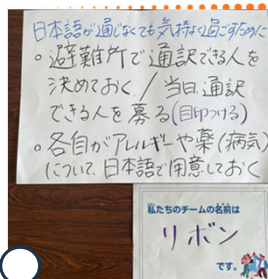 日本語が通じなくても気持よく過ごすために
○避難所で通訳できる人を
決めておく／当日、通訳
できる人を募る(目印つける)
○各自がアレルギーや薬(病気)
について、日本語で用意しておく
私たちのチームの名前は
リボン
です。